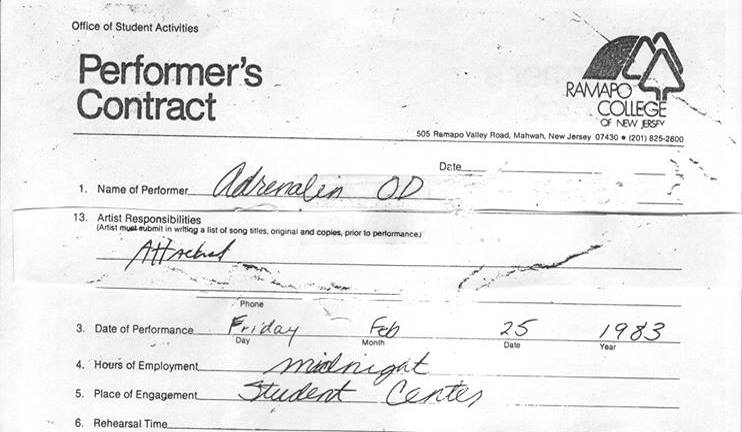 Office of Student Activities
Performer's
Contract
RAMAPO
COLLEGE
OF NEW JERSEY
505 Ramapo Valley Road, Mahwah, New Jersey 07430 • (201) 825-2800
Date
1. Name of Performer Adrenalin OD
13. Artist Responsibilities
(Artist must submit in writing a list of song titles, original and copies, prior to performance.)
Attached
Phone
3. Date of Performance Friday Feb 25 1983
Day Month Date Year
4. Hours of Employment midnight
5. Place of Engagement Student Center
6. Rehearsal Time